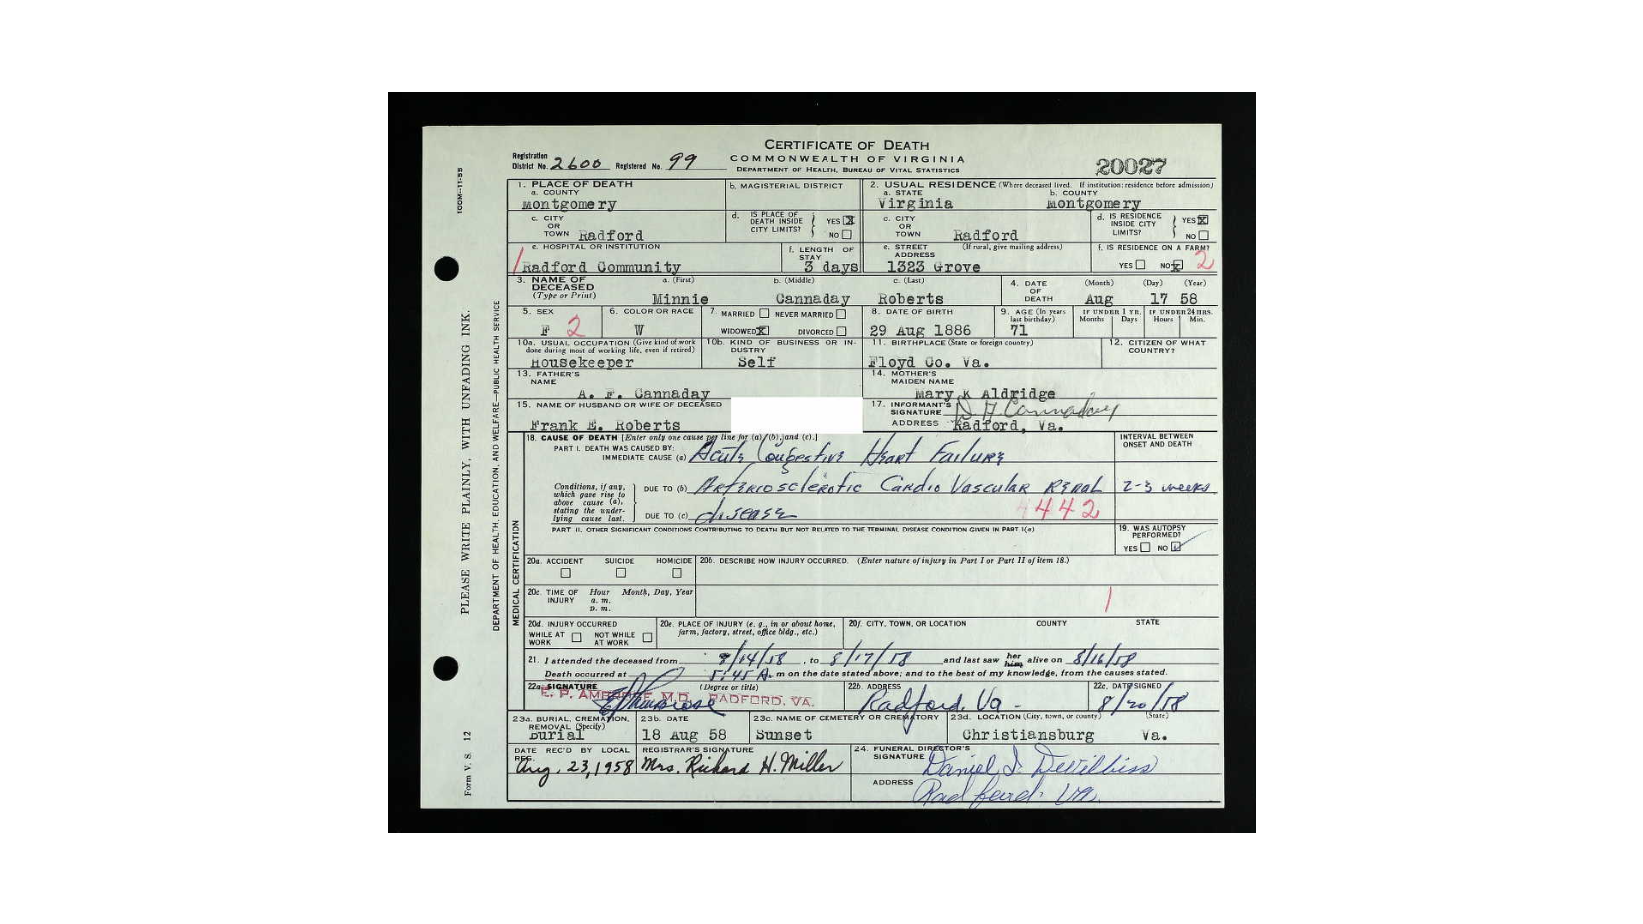 CERTIFICATE OF DEATH
COMMONWEALTH OF VIRGINIA
DEPARTMENT OF HEALTH, BUREAU OF VITAL STATISTICS
Registration District No. 2600 Registered No. 99
20027
100M-11-55
PLEASE WRITE PLAINLY, WITH UNFADING INK.
DEPARTMENT OF HEALTH, EDUCATION, AND WELFARE—PUBLIC HEALTH SERVICE
Form V. S. 12
1. PLACE OF DEATH
a. COUNTY
Montgomery
b. MAGISTERIAL DISTRICT
2. USUAL RESIDENCE (Where deceased lived. If institution: residence before admission)
a. STATE
Virginia
b. COUNTY
Montgomery
c. CITY OR TOWN Radford
d. IS PLACE OF DEATH INSIDE CITY LIMITS? YES X NO
c. CITY OR TOWN Radford
d. IS RESIDENCE INSIDE CITY LIMITS? YES X NO
e. HOSPITAL OR INSTITUTION
1 Radford Community
f. LENGTH OF STAY
3 days
e. STREET ADDRESS (If rural, give mailing address)
1323 Grove
f. IS RESIDENCE ON A FARM?
YES NO X 2
3. NAME OF DECEASED (Type or Print)
a. (First) b. (Middle) c. (Last)
Minnie Cannaday Roberts
4. DATE OF DEATH
(Month) (Day) (Year)
Aug 17 58
5. SEX
F 2
6. COLOR OR RACE
W
7. MARRIED NEVER MARRIED
WIDOWED X DIVORCED
8. DATE OF BIRTH
29 Aug 1886
9. AGE (In years last birthday)
71
IF UNDER 1 YR. Months Days
IF UNDER 24 HRS. Hours Min.
10a. USUAL OCCUPATION (Give kind of work done during most of working life, even if retired)
Housekeeper
10b. KIND OF BUSINESS OR INDUSTRY
Self
11. BIRTHPLACE (State or foreign country)
Floyd Co. Va.
12. CITIZEN OF WHAT COUNTRY?
13. FATHER'S NAME
A. F. Cannaday
14. MOTHER'S MAIDEN NAME
Mary K Aldridge
15. NAME OF HUSBAND OR WIFE OF DECEASED
Frank E. Roberts
17. INFORMANT'S SIGNATURE D H Cannaday
ADDRESS Radford, Va.
MEDICAL CERTIFICATION
18. CAUSE OF DEATH [Enter only one cause per line for (a), (b), and (c).]
PART I. DEATH WAS CAUSED BY:
IMMEDIATE CAUSE (a) Acute Congestive Heart Failure
INTERVAL BETWEEN ONSET AND DEATH
Conditions, if any, which gave rise to above cause (a), stating the underlying cause last.
DUE TO (b) Arteriosclerotic Cardio Vascular Renal 2-3 weeks
DUE TO (c) disease
442
PART II. OTHER SIGNIFICANT CONDITIONS CONTRIBUTING TO DEATH BUT NOT RELATED TO THE TERMINAL DISEASE CONDITION GIVEN IN PART I(a)
19. WAS AUTOPSY PERFORMED?
YES NO
20a. ACCIDENT SUICIDE HOMICIDE
20b. DESCRIBE HOW INJURY OCCURRED. (Enter nature of injury in Part I or Part II of item 18.)
20c. TIME OF INJURY Hour a. m. p. m. Month, Day, Year
1
20d. INJURY OCCURRED
WHILE AT WORK NOT WHILE AT WORK
20e. PLACE OF INJURY (e. g., in or about home, farm, factory, street, office bldg., etc.)
20f. CITY, TOWN, OR LOCATION COUNTY STATE
21. I attended the deceased from 8/14/58, to 8/17/58 and last saw her him alive on 8/16/58
Death occurred at 5:45 A. m on the date stated above; and to the best of my knowledge, from the causes stated.
22a. SIGNATURE (Degree or title)
E. P. AMBROSE M.D. RADFORD, VA.
22b. ADDRESS
Radford, Va -
22c. DATE SIGNED
8/20/58
23a. BURIAL, CREMATION, REMOVAL (Specify)
Burial
23b. DATE
18 Aug 58
23c. NAME OF CEMETERY OR CREMATORY
Sunset
23d. LOCATION (City, town, or county) (State)
Christiansburg Va.
DATE REC'D BY LOCAL REG.
Aug. 23, 1958
REGISTRAR'S SIGNATURE
Mrs. Richard H. Miller
24. FUNERAL DIRECTOR'S SIGNATURE
ADDRESS Radford, Va.